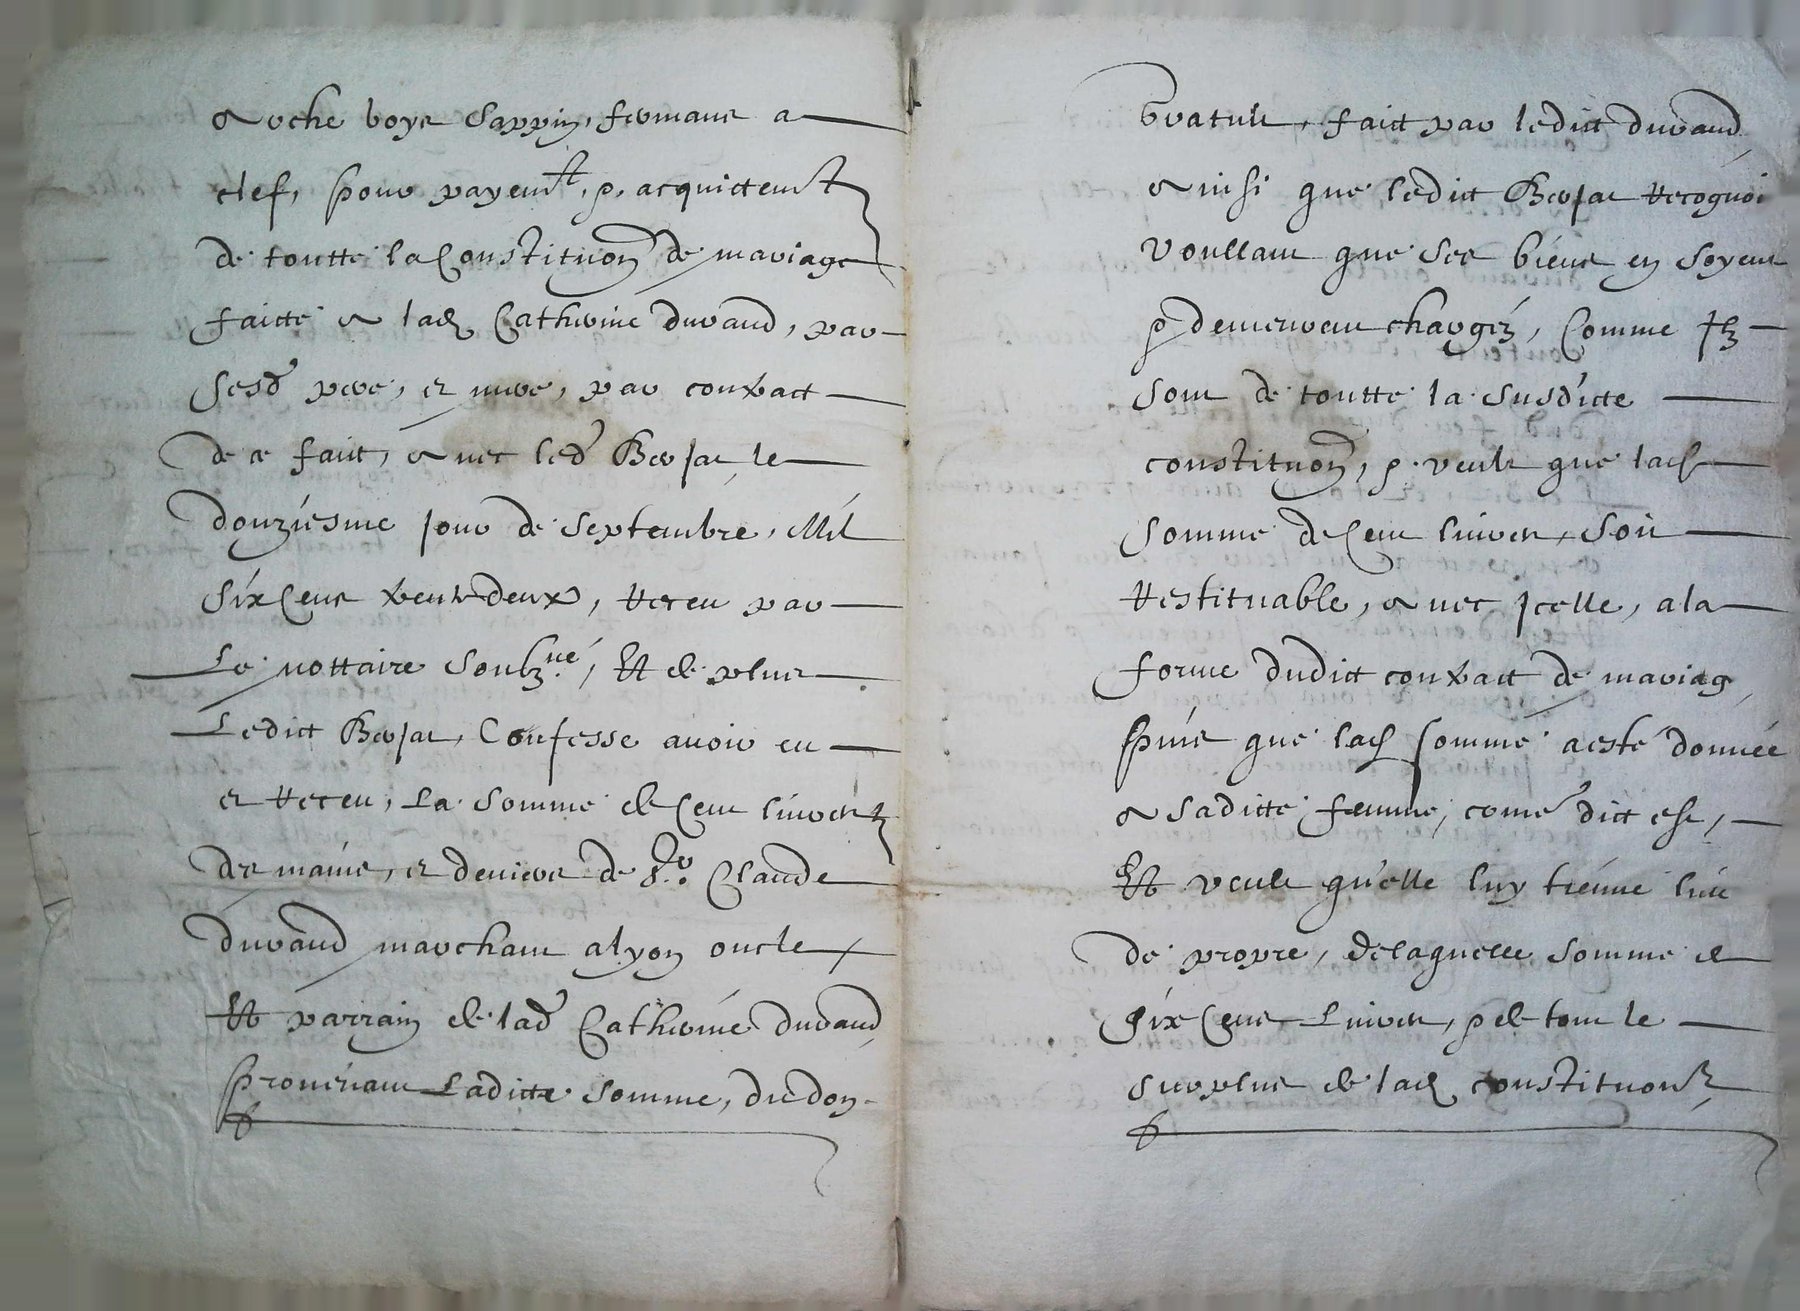 arche boys sappin, fermant a
clef, pour payemt, & acquittemt
de toutte la constitution de mariage
faicte a lad Catherine durand, par
sesd pere, et mere, par contract
de ce faict, avec led Berjat, le
douziesme jour de septembre, Mil
six cens trente deux, receu par
Le nottaire soubzne, Et de plus
Ledict Berjat, Confesse avoir eu
et receu, La somme de Cent livres
des mains, et deniers de Sr. Claude
durand marchant a lyon oncle
Et parrain de lad Catherine durand,
provenant Laditte somme, du don
gratuit, faict par ledict durand
ainsi que ledict Berjat recognoi
voullant que ses biens en soyent
& demeurent chargez, Comme Ilz
sont de toutte la susdicte
constitution, & veult que lad
somme de Cent livres, soit
restituable, avec icelle, a la
forme dudict contract de mariag
puis que lad somme a esté donnée
a saditte femme, come dict est,
Et veult qu'elle luy tienne lieu
de propre, de laquelle somme de
six Cens Livres, & de tout le
surplus de lad constitution